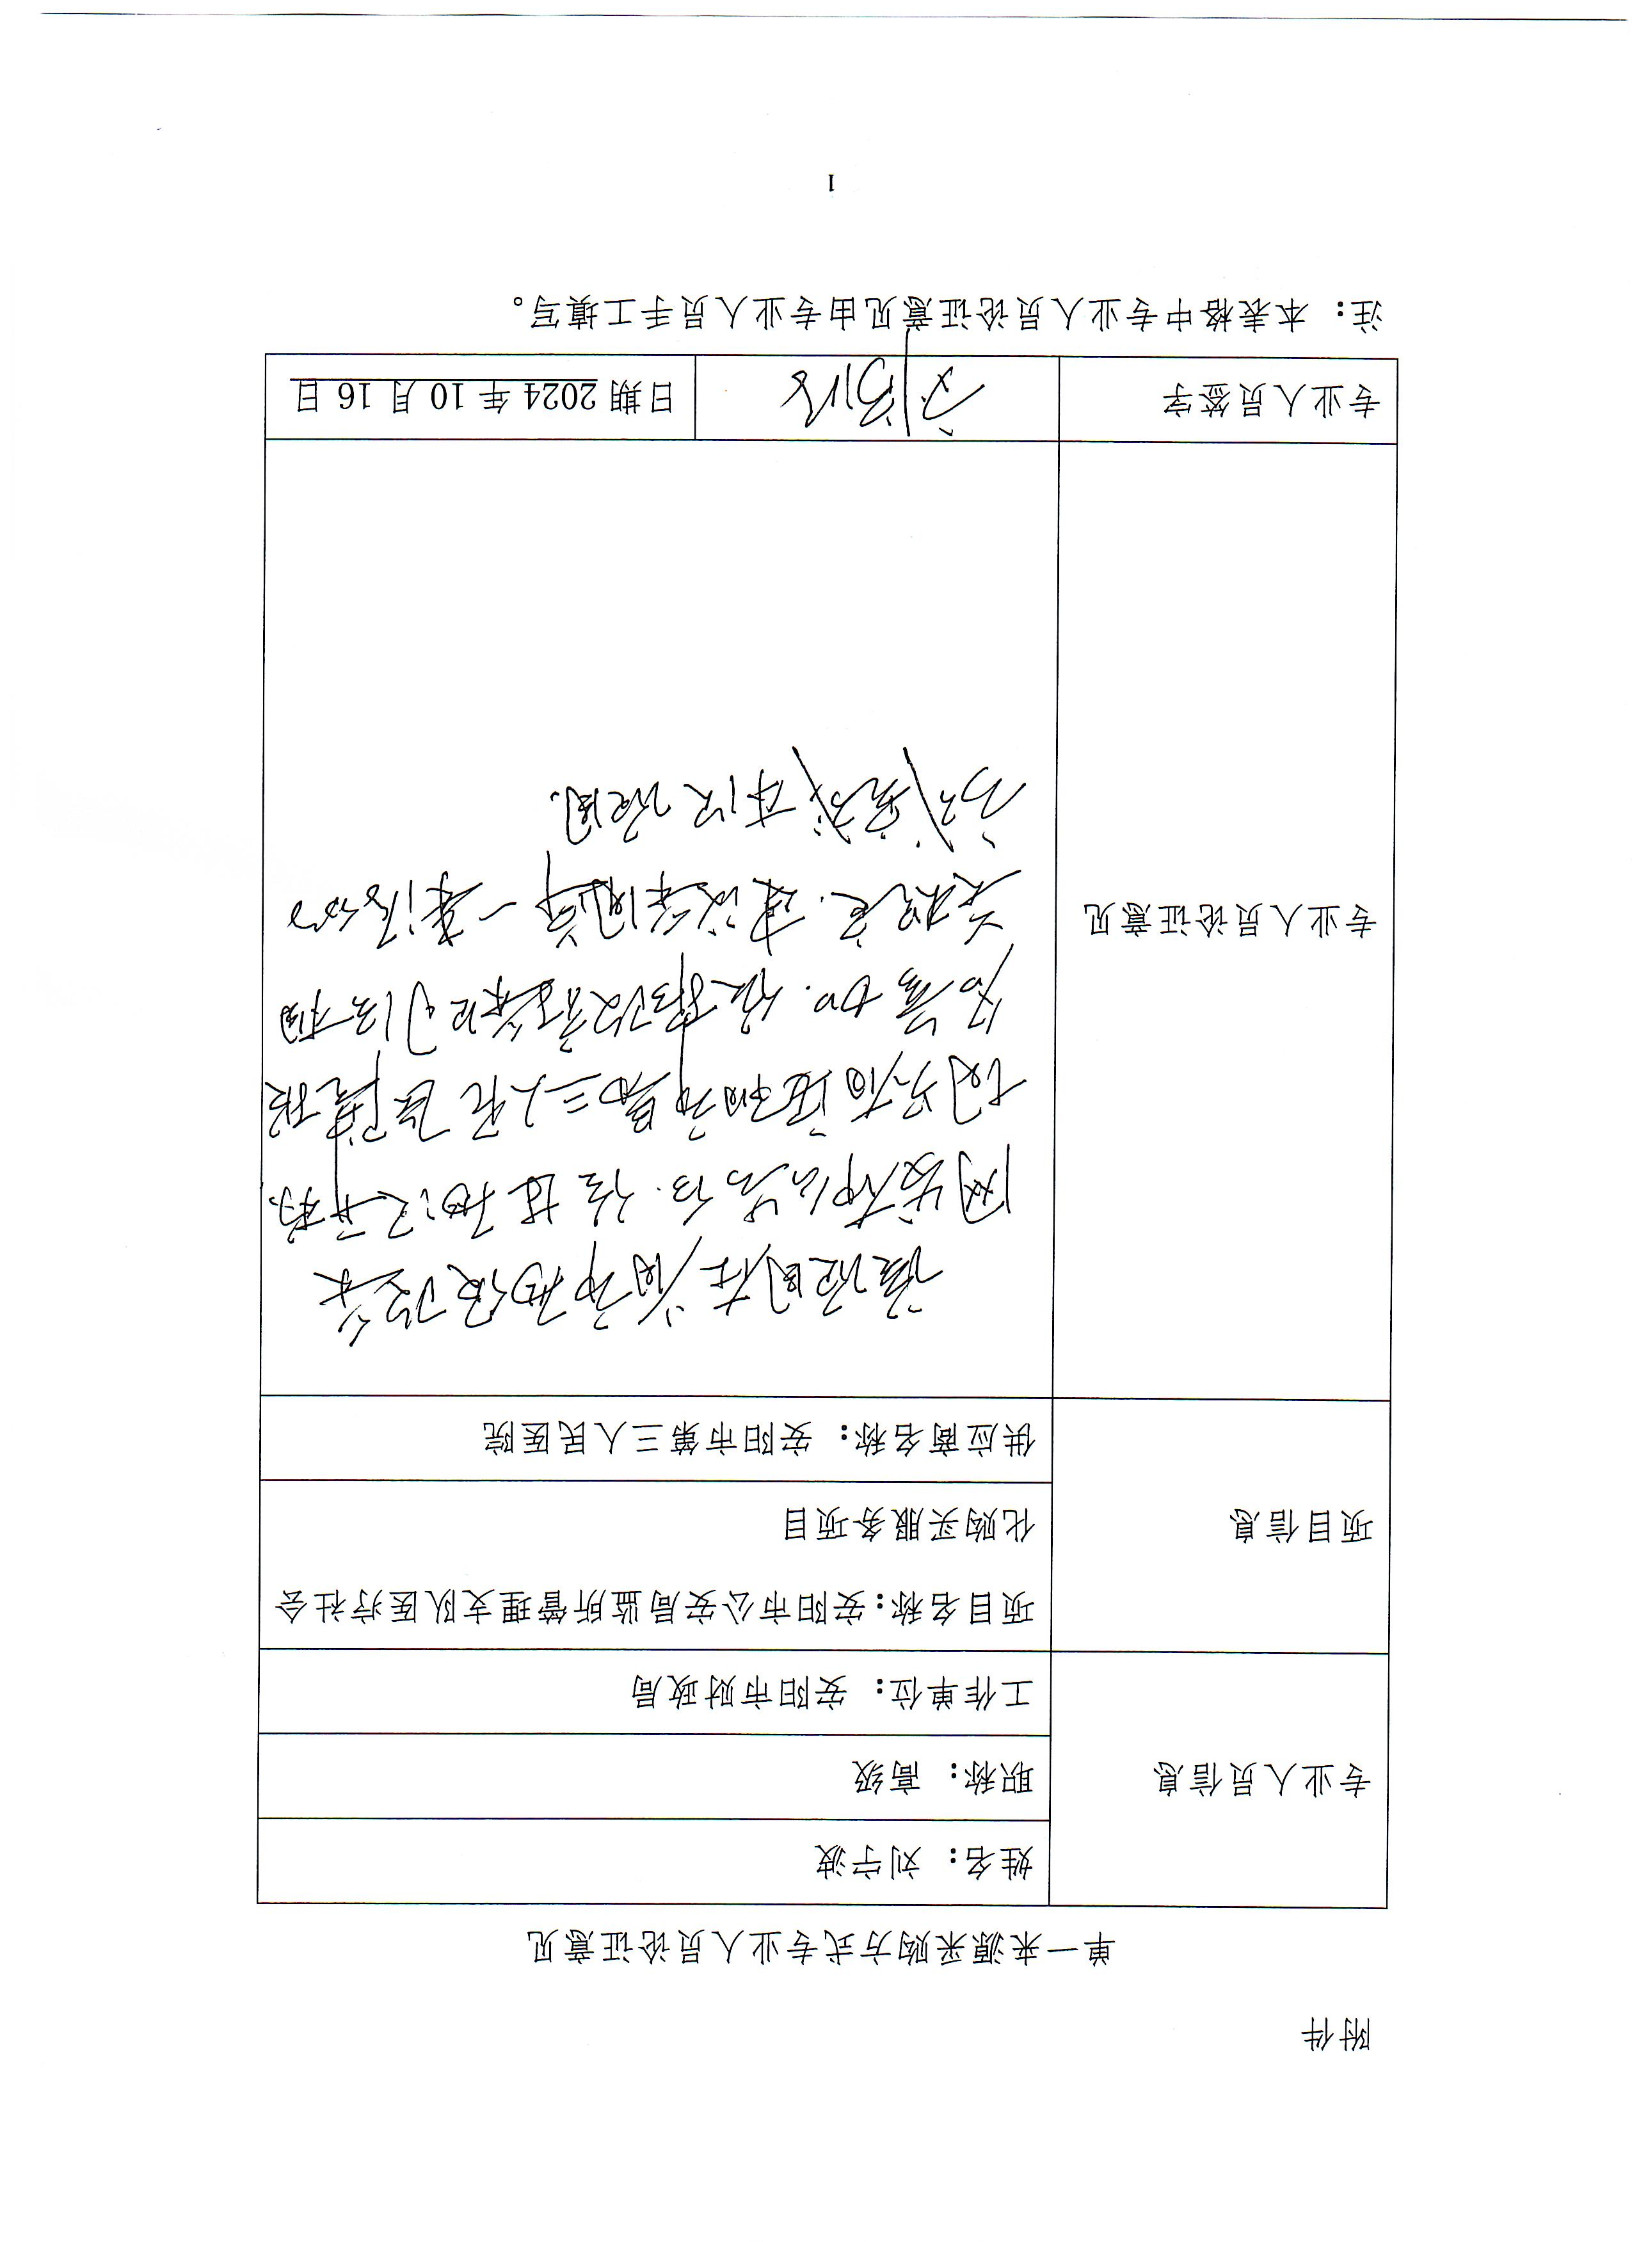 附件
单一来源采购方式专业人员论证意见
专业人员信息
姓名： 刘宁波
职称： 高级
工作单位： 安阳市财政局
项目信息
项目名称：安阳市公安局监所管理支队医疗社会
化购买服务项目
供应商名称： 安阳市第三人民医院
专业人员论证意见
该项目在省市政府采
网发布公告后.
安阳市第三人民医院报
名参加.依据政府采购法相
关规定.建议采用单一来源的
方式完成本次项目.
专业人员签字
刘宁波
日期 2024 年 10 月 16 日
注：本表格中专业人员论证意见由专业人员手工填写。
1